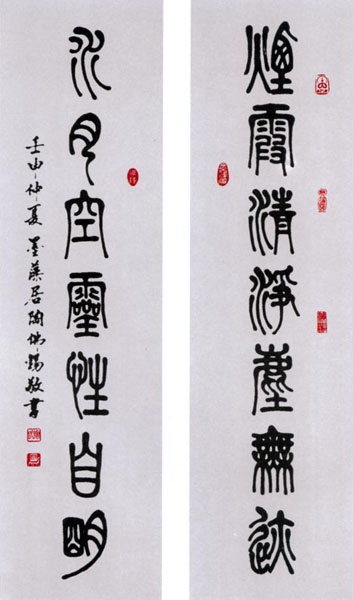 煙霞清淨塵無迹
水月空靈性自明
壬申仲夏 墨 居陶佛錫敬書